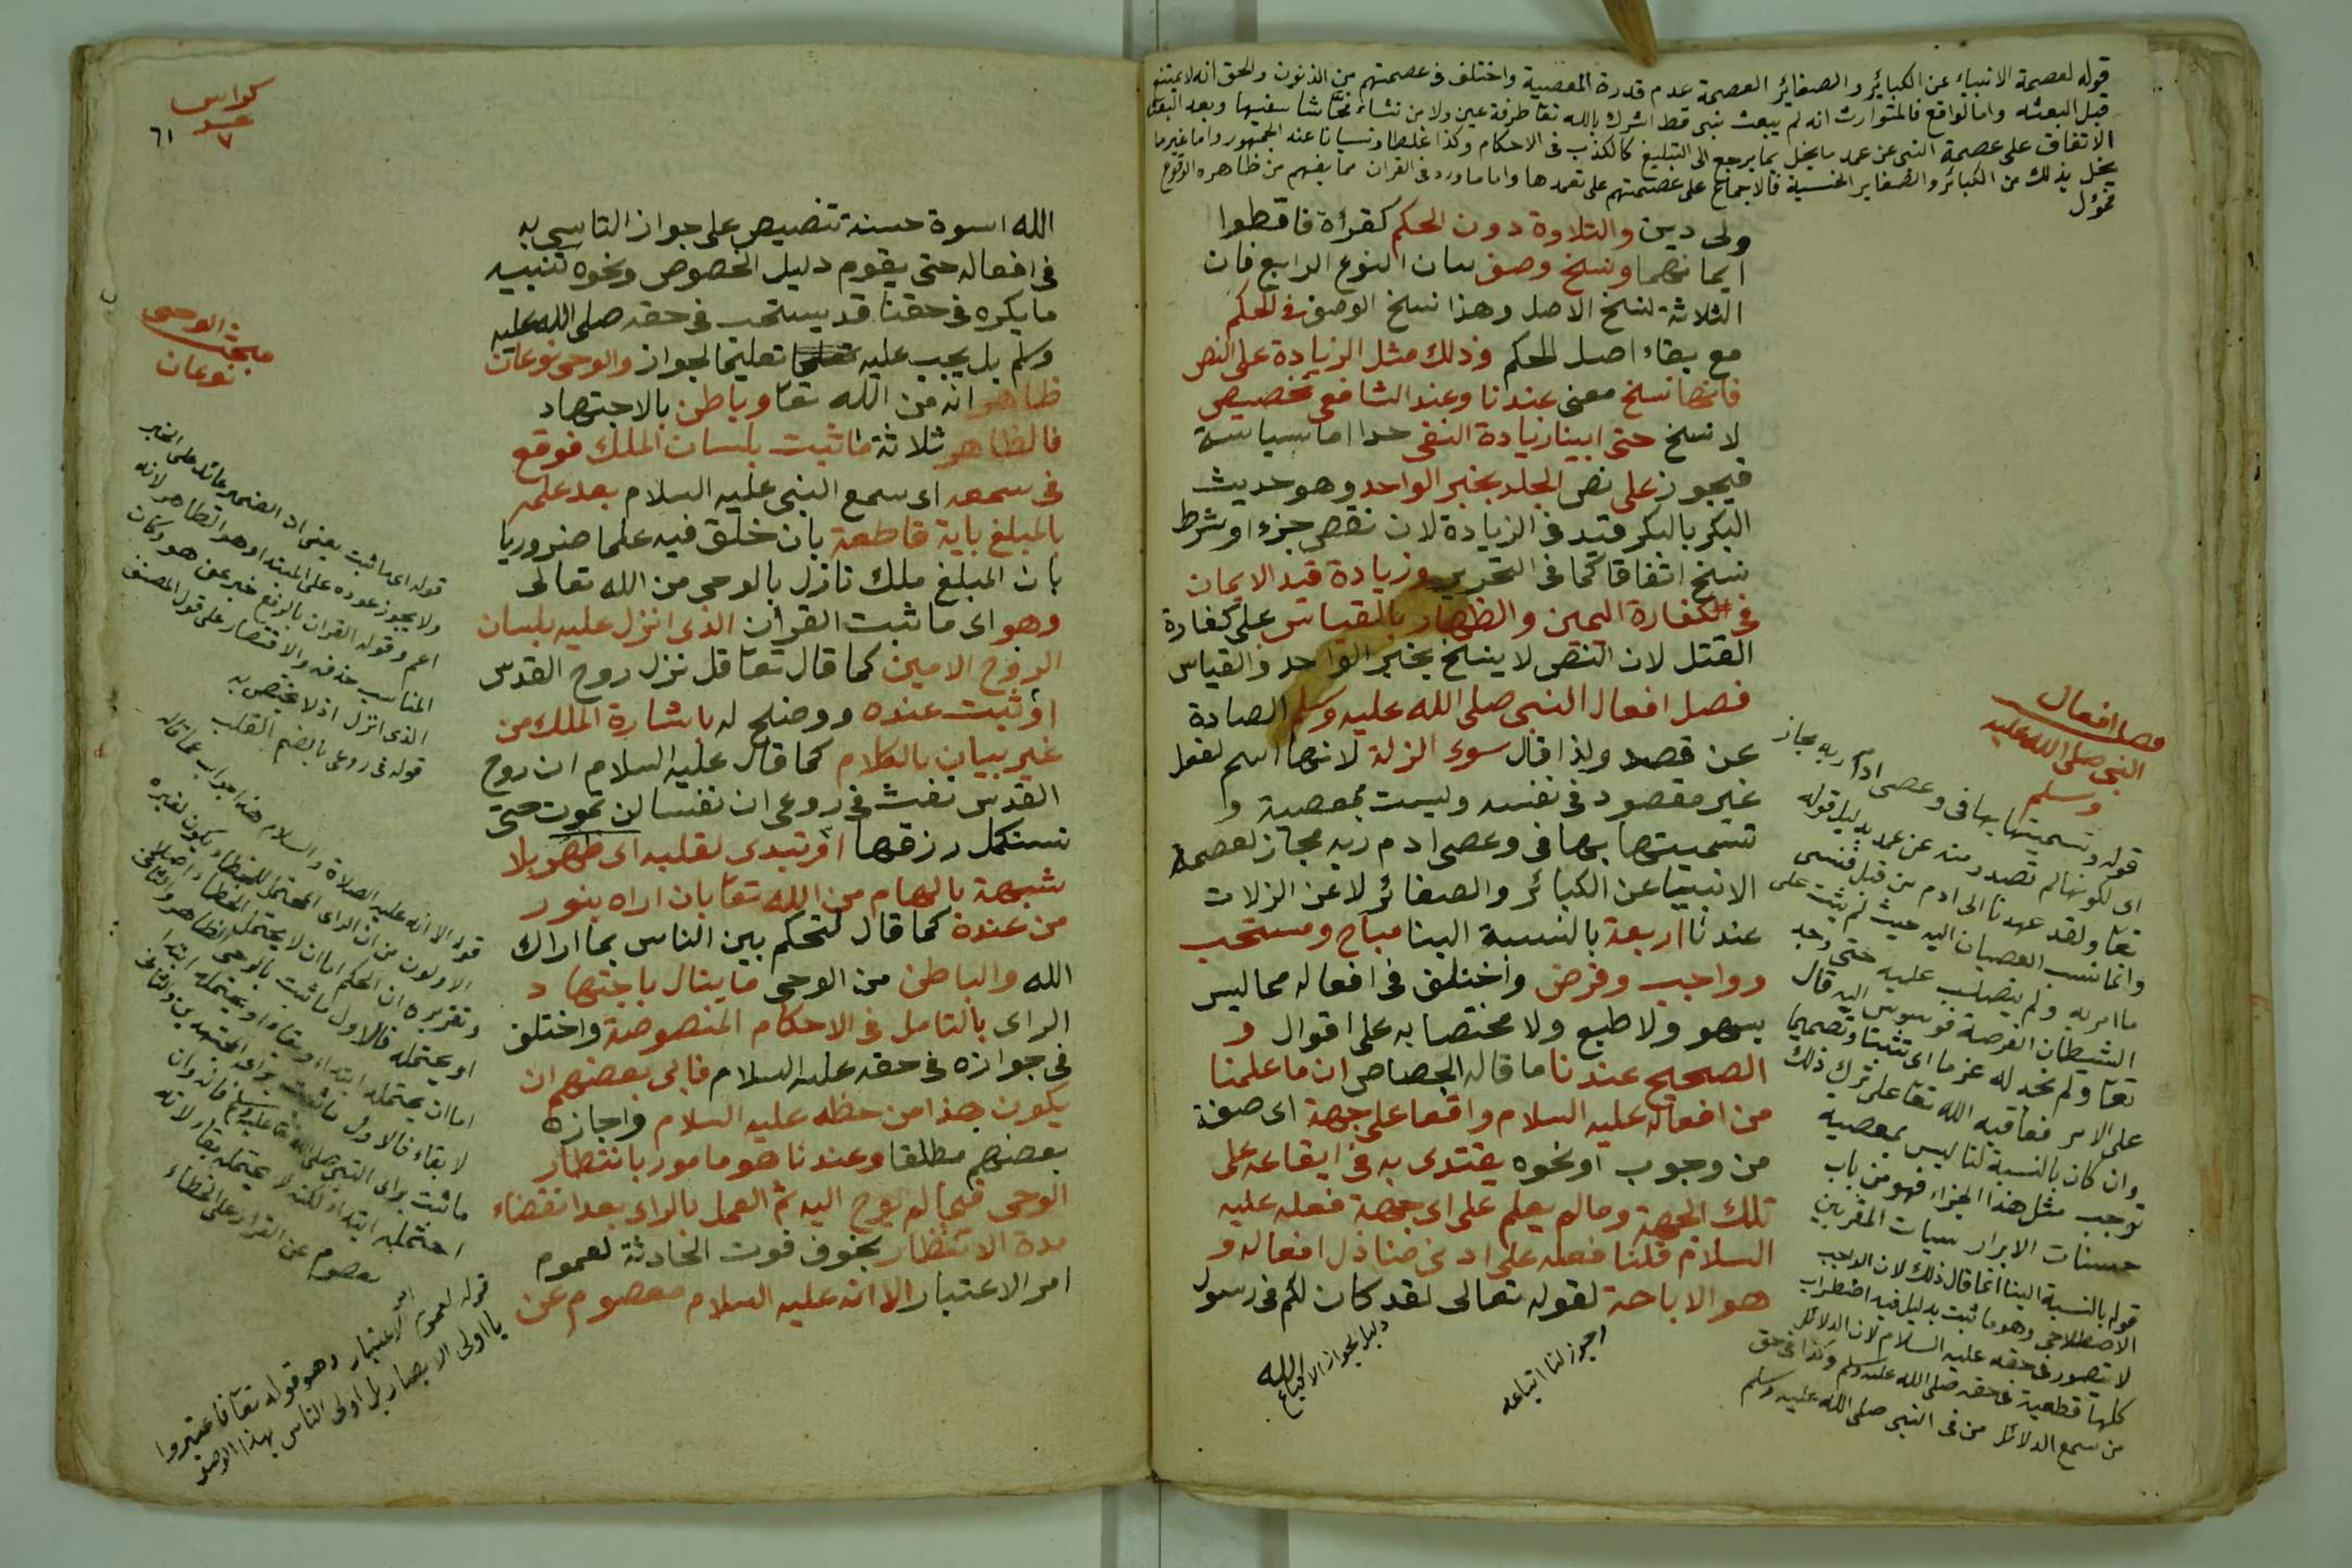 قوله لعصمة الانبياء عن الكبائر والصغائر العصمة عدم قدرة المعصية واختلف فى عصمتهم من الذنوب والحق انه لا يمتنع
قبل البعثه واما الواقع فالمتوارث انه لم يبعث نبى قط اشرك بالله تعا طرفة عين ولا من نشاء فحاشا سفيها وبعد البعثة
الاتفاق على عصمة النبى عن عمد ما يخل بما يرجع الى التبليغ كالكذب فى الاحكام وكذا غلطا ونسيانا عند الجمهور واما غير ما
يخل بذلك من الكبائر والصغاير الخسيسة فالاجماع على عصمتهم على تعمدها واما ما ورد فى القران مما يفهم من ظاهره الوقوع
فمؤل
ولى دين والتلاوة دون الحكم كقرأة فاقطوا
ايمانهما ونسخ وصف بيان النوع الرابع فان
الثلاثة لنسخ الاصل وهذا نسخ الوصف فى الحكم
مع بقاء اصل الحكم وذلك مثل الزيادة على النص
فانها نسخ معنى عندنا وعند الشافعى تخصيص
لا نسخ حتى ابينا زيادة النفى حدا اما سياسة
فيجوز على نص الجلد بخبر الواحد وهو حديث
البكر بالبكر قيد فى الزيادة لان نقص جزء او شرط
نسخ اتفاقا كما فى التحرير وزيادة قيد الايمان
فى كفارة اليمين والظهار بالقياس على كفارة
القتل لان النص لا ينسخ بخبر الواحد والقياس
فصل افعال النبى صلى الله عليه وسلم الصادة
عن قصد ولذا قال سوى الزلة لانها اسم لفعل
غير مقصود فى نفسه وليست بمعصية و
تسميتها بها فى وعصى ادم ربه مجاز لعصمة
الانبييا عن الكبائر والصغائر لا عن الزلات
عندنا اربعة بالنسبة الينا مباح ومستحب
وواجب وفرض واختلف فى افعاله مما ليس
بسهو ولا طبع ولا مختصا به على اقوال و
الصحيح عندنا ما قاله الجصاص ان ما علمنا
من افعاله عليه السلام واقعا على جهة اى صفة
من وجوب او نحوه يقتدى به فى ايقاعه على
تلك الجهة وما لم يعلم على اى جهة فعله عليه
السلام قلنا فعله على ادنى منازل افعاله و
هو الاباحة لقوله تعالى لقد كان لكم فى رسول
الله
دليل لجواز الاتباع
اى يجوز لنا اتباعه
فصل افعال
النبى صلى الله عليه
وسلم
قوله وتسميتها بها فى وعصى ادم ربه مجاز
اى لكونها لم تصدر منه عن عمد بدليل قوله
تعا ولقد عهدنا الى ادم من قبل فنسى
وانما نسب العصيان اليه حيث لم يثبت على
ما امر به ولم يتصلب عليه حتى وجد
الشيطان الفرصة فوسوس اليه قال
تعا ولم نجد له عزما اى تثبتا وتصميما
على الامر فعاقبه الله تعا على ترك ذلك
وان كان بالنسبة لنا ليس بمعصية
توجب مثل هذا الجزاء فهو من باب
حسنات الابرار سيات المقربين
قوله بالنسبة الينا انما قال ذلك لان الواجب
الاصطلاحى وهو ما ثبت بدليل فيه اضطراب
لا يتصور فى حقه عليه السلام لان الدلائل
كلها قطعية فى حقه صلى الله عليه وسلم وكذا فى حق
من سمع الدلائل من فى النبى صلى الله عليه وسلم
كراس
عدد
٧
٦١
الله اسوة حسنة تنصيص على جواز التاسى به
فى افعاله حتى يقوم دليل الخصوص ونحوه تنبيه
ما يكره فى حقنا قد يستحب فى حقه صلى الله عليه
وسلم بل يجب عليه تعليما لجواز والوحى نوعان
ظاهر انه من الله تعا وباطن بالاجتهاد
فالظاهر ثلاثة ما ثبت بلسان الملك فوقع
فى سمعه اى سمع النبى عليه السلام بعد علمه
بالمبلغ باية قاطعة بان خلق فيه علما ضروريا
بان المبلغ ملك نازل بالوحى من الله تعالى
وهو اى ما ثبت القرأن الذى انزل عليه بلسان
الروح الامين كما قال تعا قل نزل روح القدس
او ثبت عنده ووضح له باشارة الملك من
غير بيان بالكلام كما قال عليه السلام ان روح
القدس نفث فى روعى ان نفسا لن تموت حتى
تستكمل رزقها او تبدى لقلبه اى ظهر بلا
شبهة بالهام من الله تعا بان اراه بنور
من عنده كما قال لتحكم بين الناس بما اراك
الله والباطن من الوحى ما ينال باجتهاد
الراى بالتامل فى الاحكام المنصوصة واختلف
فى جوازه فى حقه عليه السلام فابى بعضهم ان
يكون هذا من حظه عليه السلام واجازه
بعضهم مطلقا وعندنا هو مامور بانتظار
الوحى فيما لم يوح اليه ثم العمل بالراى بعد انقضاء
مدة الانتظار بخوف فوت الحادثة لعموم
امر الاعتبار الا انه عليه السلام معصوم عن
مبحث الوحى
نوعان
قوله اى ما ثبت يعنى ان الضمير عائد على الخبر
ولا يجوز عوده على المبتدا وهو الظاهر لانه
اعم وقوله القران بالرفع خبر عن هو وكان
المناسب حذفه والاقتصار على قول المصنف
الذى انزل اذ لا يختص به
قوله فى روعى بالضم القلب
قوله الا انه عليه الصلاة والسلام هذا جواب عما قاله
الاولون من ان الراى المحتمل للخطاء يكون لغيره
وتقريره ان الحكم اما ان لا يحتمل الخطاء اصلا
او يحتمله فالاول ما ثبت بالوحى الظاهر والثانى
اما ان يحتمله ابتداء وبقاء او يحتمله ابتدا
لا بقاء فالاول ما ثبت براى المجتهدين والثانى
ما ثبت براى النبى صلى الله تعا عليه وسلم فانه وان
احتمله ابتداء لكنه لا يحتمله بقاء لانه
معصوم عن القرار على الخطاء
قوله لعموم امر الاعتبار وهو قوله تعا فاعتبروا
يا اولى الابصار بل اولى الناس بهذا الوصف